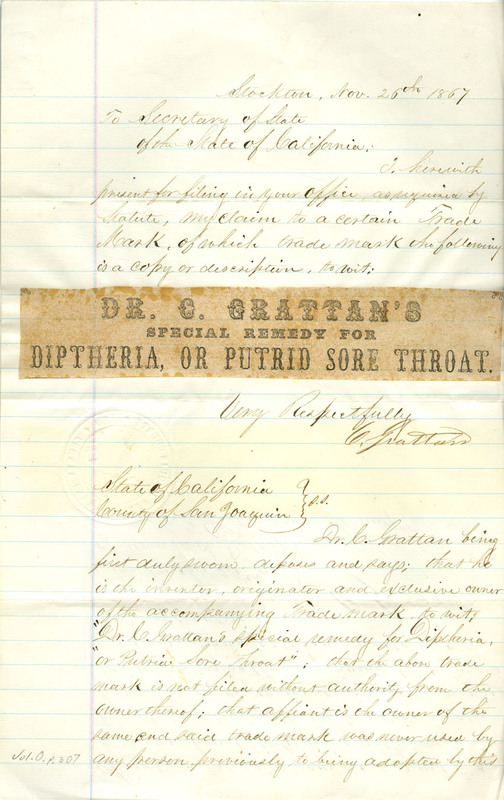 Stockton, Nov. 26th 1867
To Secretary of State
of the State of California:
I herewith
present for filing in your office, as required by
Statute, my claim to a certain Trade
Mark, of which trade mark the following
is a copy or description, to wit:
DR. C. GRATTAN'S
SPECIAL REMEDY FOR
DIPTHERIA, OR PUTRID SORE THROAT.
Very Respectfully
C. Grattan
State of California
County of San Joaquin } S.S.
Dr. C. Grattan being
first duly sworn deposes and says; that he
is the inventor, originator and exclusive owner
of the accompanying Trade mark to wit;
"Dr. C. Grattan's special remedy for Diptheria,
"or Putrid Sore throat"; that the above trade
mark is not filed without authority from the
owner thereof; that affiant is the owner of the
same and said trade mark was never used by
any person previously to being adopted by this
Vol. O. p. 207